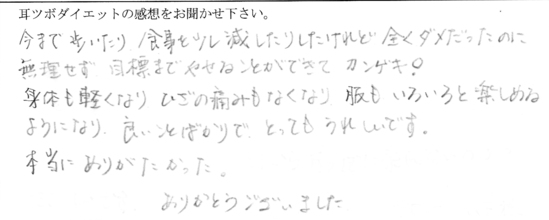 耳ツボダイエットの感想をお聞かせ下さい。
今まで歩いたり、食事を少し減したりしたけれど全くダメだったのに
無理せず目標までやせることができてカンゲキ!
身体も軽くなりひざの痛みもなくなり服もいろいろと楽しめる
ようになり、良いことばかりでとってもうれしいです。
本当にありがたかった。
ありがとうございました